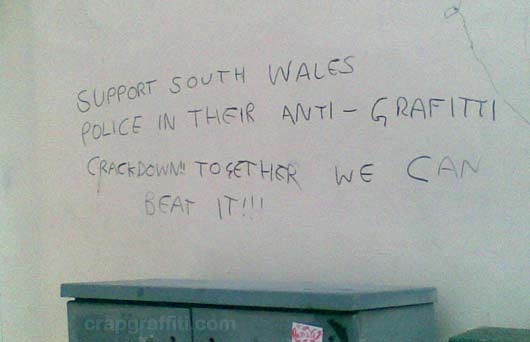 SUPPORT SOUTH WALES
POLICE IN THEIR ANTI - GRAFITTI
CRACKDOWN!! TOGETHER WE CAN
BEAT IT!!!
crapgraffiti.com